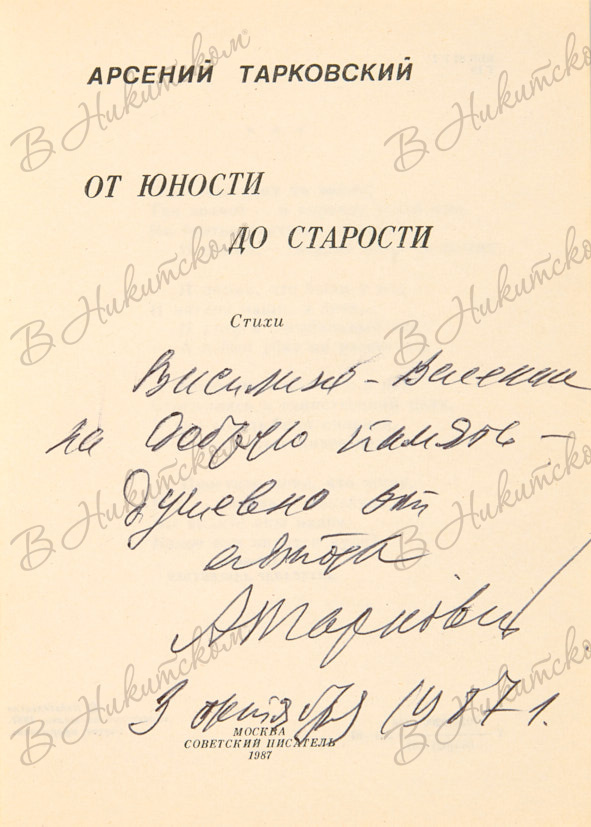 АРСЕНИЙ ТАРКОВСКИЙ
ОТ ЮНОСТИ
ДО СТАРОСТИ
Стихи
на добрую память –
душевно от
автора
А Тарковский
3 октября 1987 г.
МОСКВА
СОВЕТСКИЙ ПИСАТЕЛЬ
1987
В Никитском
В Никитском
В Никитском
В Никитском
В Никитском
В Никитском
В Никитском
В Никитском